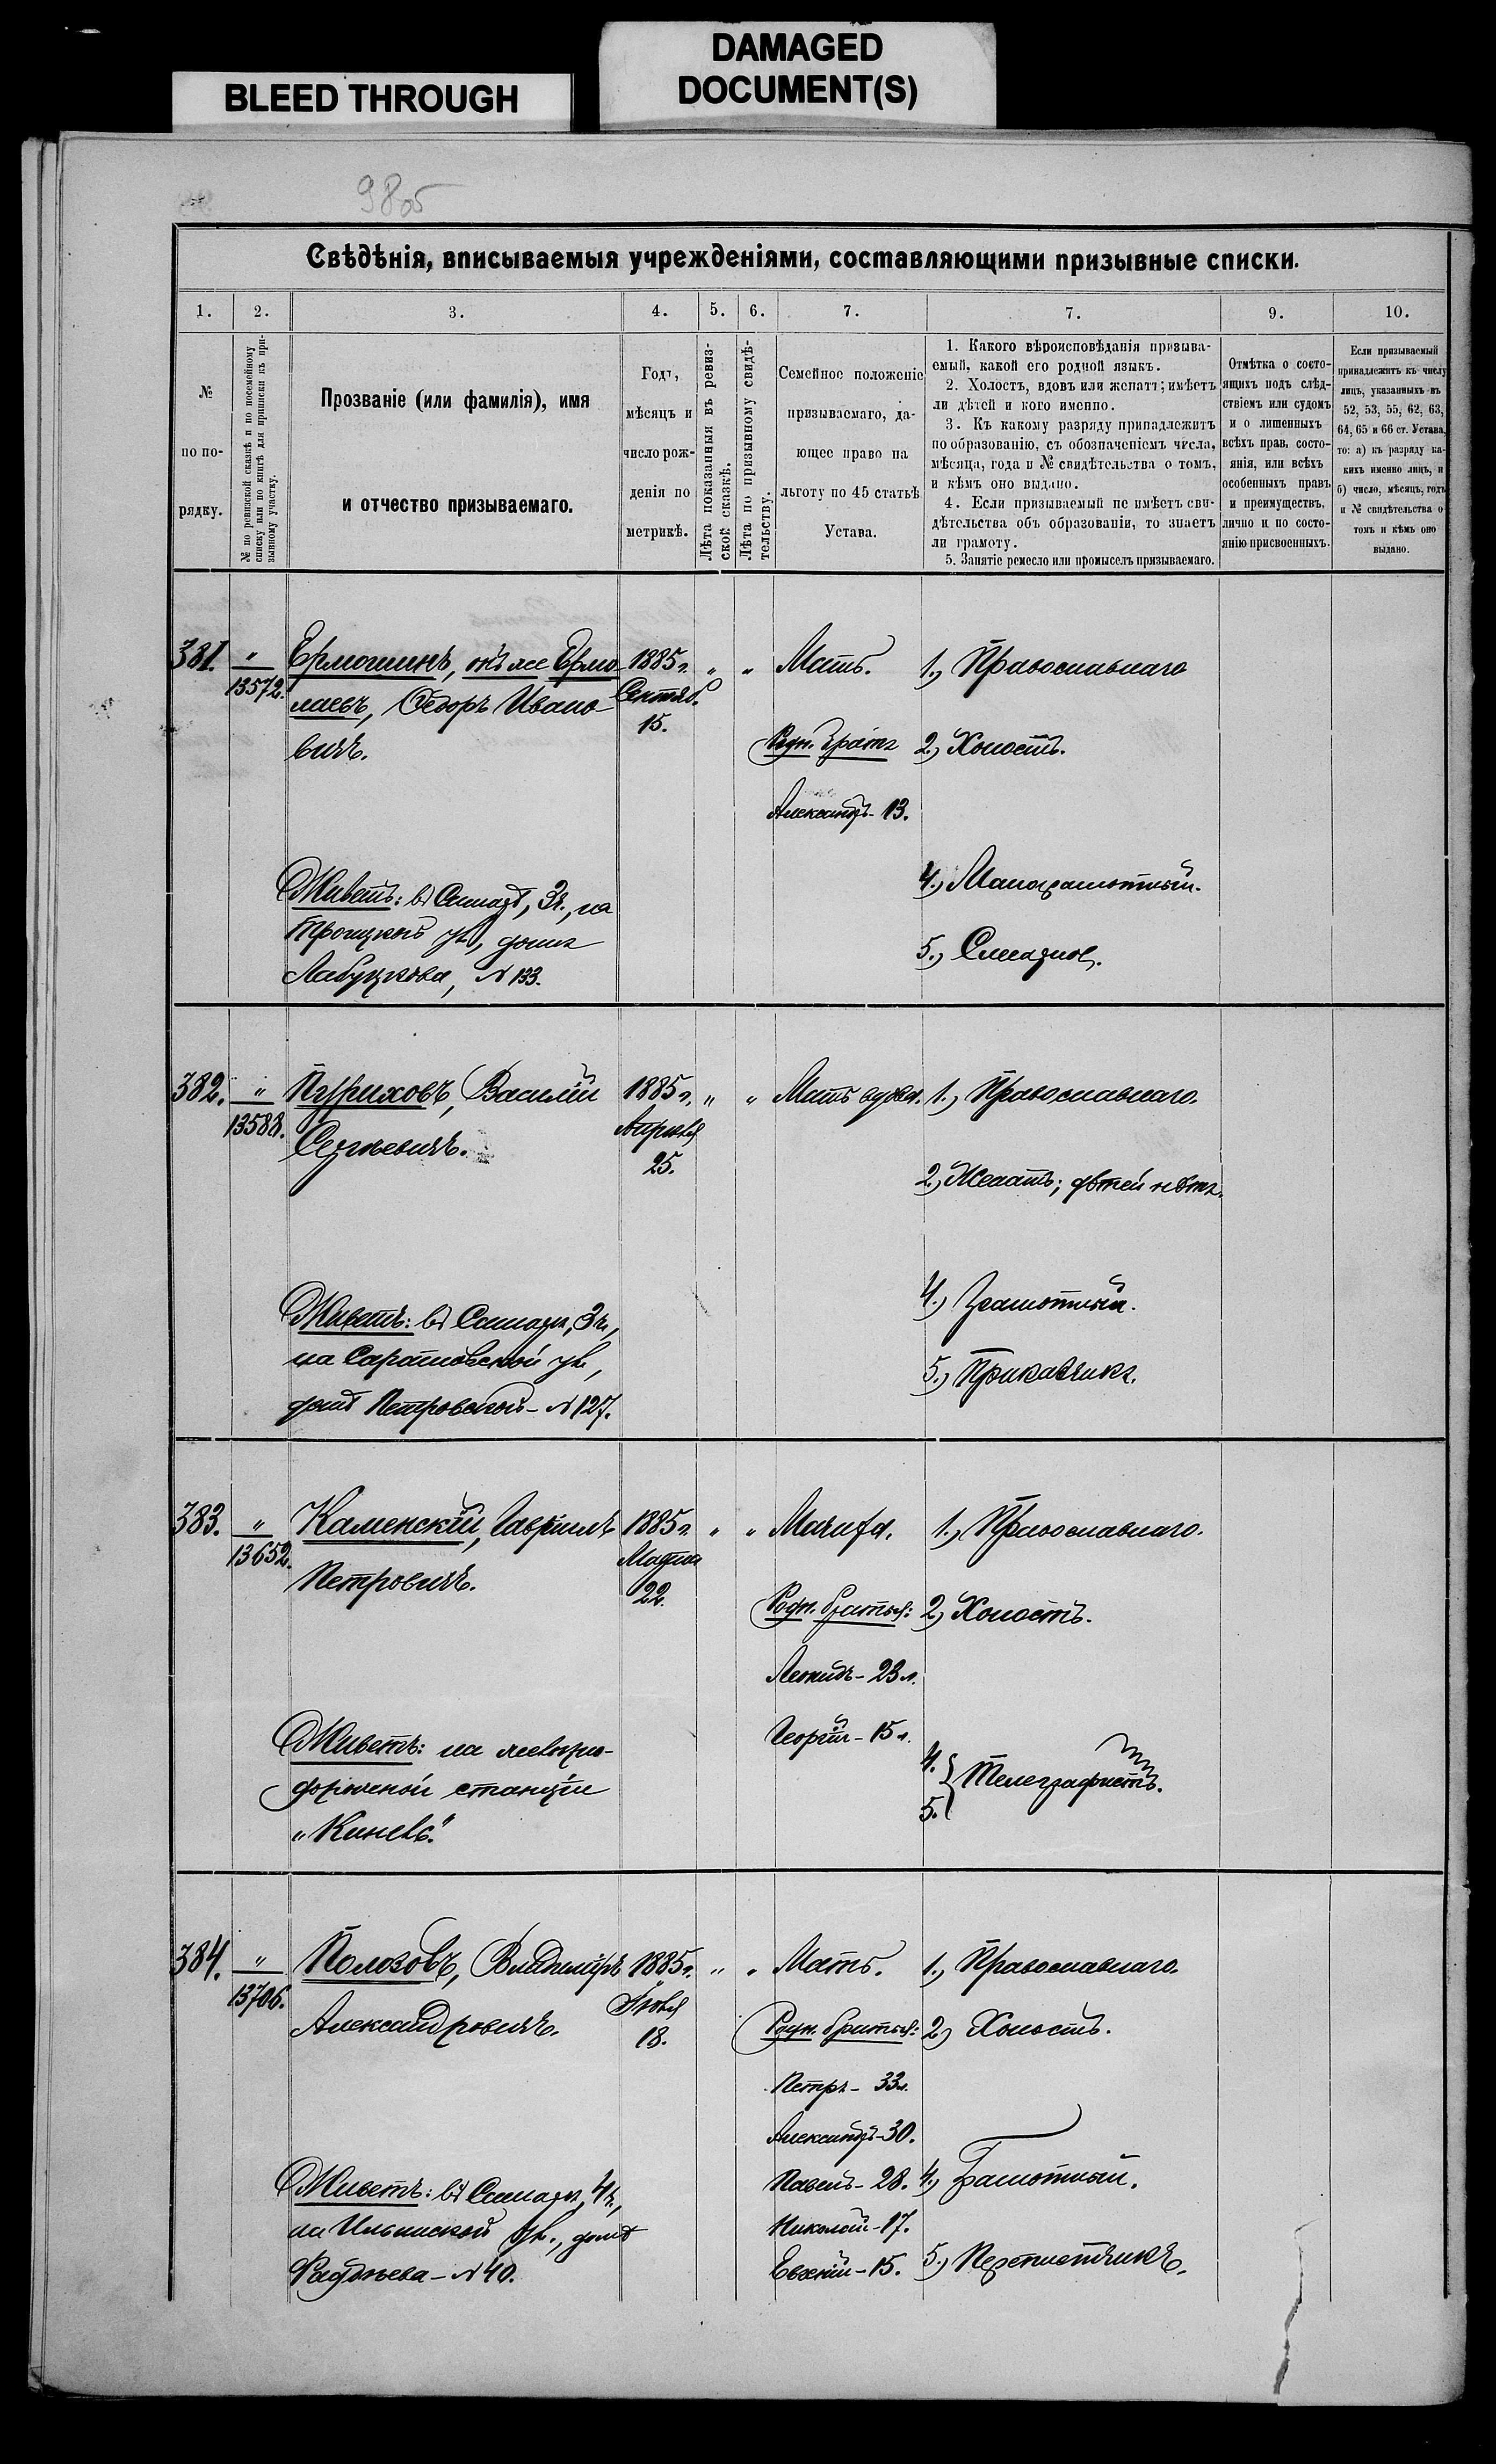 BLEED THROUGH
DAMAGED
DOCUMENT(S)
98об
Свѣдѣнія, вписываемыя учрежденіями, составляющими призывные списки.
1.
2.
3.
4.
5.
6.
7.
7.
9.
10.
№
по по-
рядку.
№ по ревизской сказкѣ и по посемейному
списку или по книгѣ для приписки къ при-
зывному участку.
Прозваніе (или фамилія), имя
и отчество призываемаго.
Годъ,
мѣсяцъ и
число рож-
денія по
метрикѣ.
Лѣта показанныя въ ревиз-
ской сказкѣ.
Лѣта по призывному свидѣ-
тельству.
Семейное положеніе
призываемаго, да-
ющее право на
льготу по 45 статьѣ
Устава.
1. Какого вѣроисповѣданія призыва-
емый, какой его родной языкъ.
2. Холостъ, вдовъ или женатъ; имѣетъ
ли дѣтей и кого именно.
3. Къ какому разряду принадлежитъ
по образованію, съ обозначеніемъ числа,
мѣсяца, года и № свидѣтельства о томъ,
и кѣмъ оно выдано.
4. Если призываемый не имѣетъ сви-
дѣтельства объ образованіи, то знаетъ
ли грамоту.
5. Занятіе ремесло или промыселъ призываемаго.
Отмѣтка о состо-
ящихъ подъ слѣд-
ствіемъ или судомъ
и о лишенныхъ
всѣхъ прав, состо-
янія, или всѣхъ
особенныхъ правъ
и преимуществъ,
лично и по состо-
янію присвоенныхъ.
Если призываемый
принадлежитъ къ числу
лицъ, указанныхъ въ
52, 53, 55, 62, 63,
64, 65 и 66 ст. Устава,
то: а) къ разряду ка-
кихъ именно лицъ, и
б) число, мѣсяцъ, годъ
и № свидѣтельства о
томъ и кѣмъ оно
выдано.
381. " Ермошинъ, онъ же Ермо- 1885 г. " " Мать. 1.) Православнаго
13572. лаевъ, Ѳедоръ Ивано- Сентяб.
вичъ. 15. Родн. братъ 2.) Холостъ.
Александръ - 13.
Живетъ: въ Самарѣ, 3 ч., на 4.) Малограмотный.
Троицкой ул., домъ 5.)
N 133.
382. " Василій 1885 г. " " Мать вдова. 1.) Православнаго.
13588. Сергѣевичъ. Апрѣля
25.
2.) Женатъ; дѣтей нѣтъ.
Живетъ: въ Самарѣ, 3 ч., 4.) Грамотный.
на Саратовской ул., 5.) Прикащикъ.
домъ Петровской - N 127.
383. " Каменскій, Гавріилъ 1885 г. " " Мачиха. 1.) Православнаго.
13652. Петровичъ. Марта
22. Родн. братья: 2.) Холостъ.
Леонидъ - 23 л.
Георгій - 15 л.
Живетъ: на желѣзно- 4. 5. } Телеграфистъ.
дорожной станціи
"Кинель".
384. " Полозовъ, Владиміръ 1885 г. " " Мать. 1.) Православнаго.
13706. Александровичъ. Іюля
18. Родн. братья: 2.) Холостъ.
Петръ - 33 л.
Александръ - 30.
Живетъ: въ Самарѣ, 4 ч., Павелъ - 28. 4.) Грамотный.
на Ильинской ул., домъ Николай - 17.
Фадѣева - N 40. Евгеній - 15. 5.) Переписчикъ.